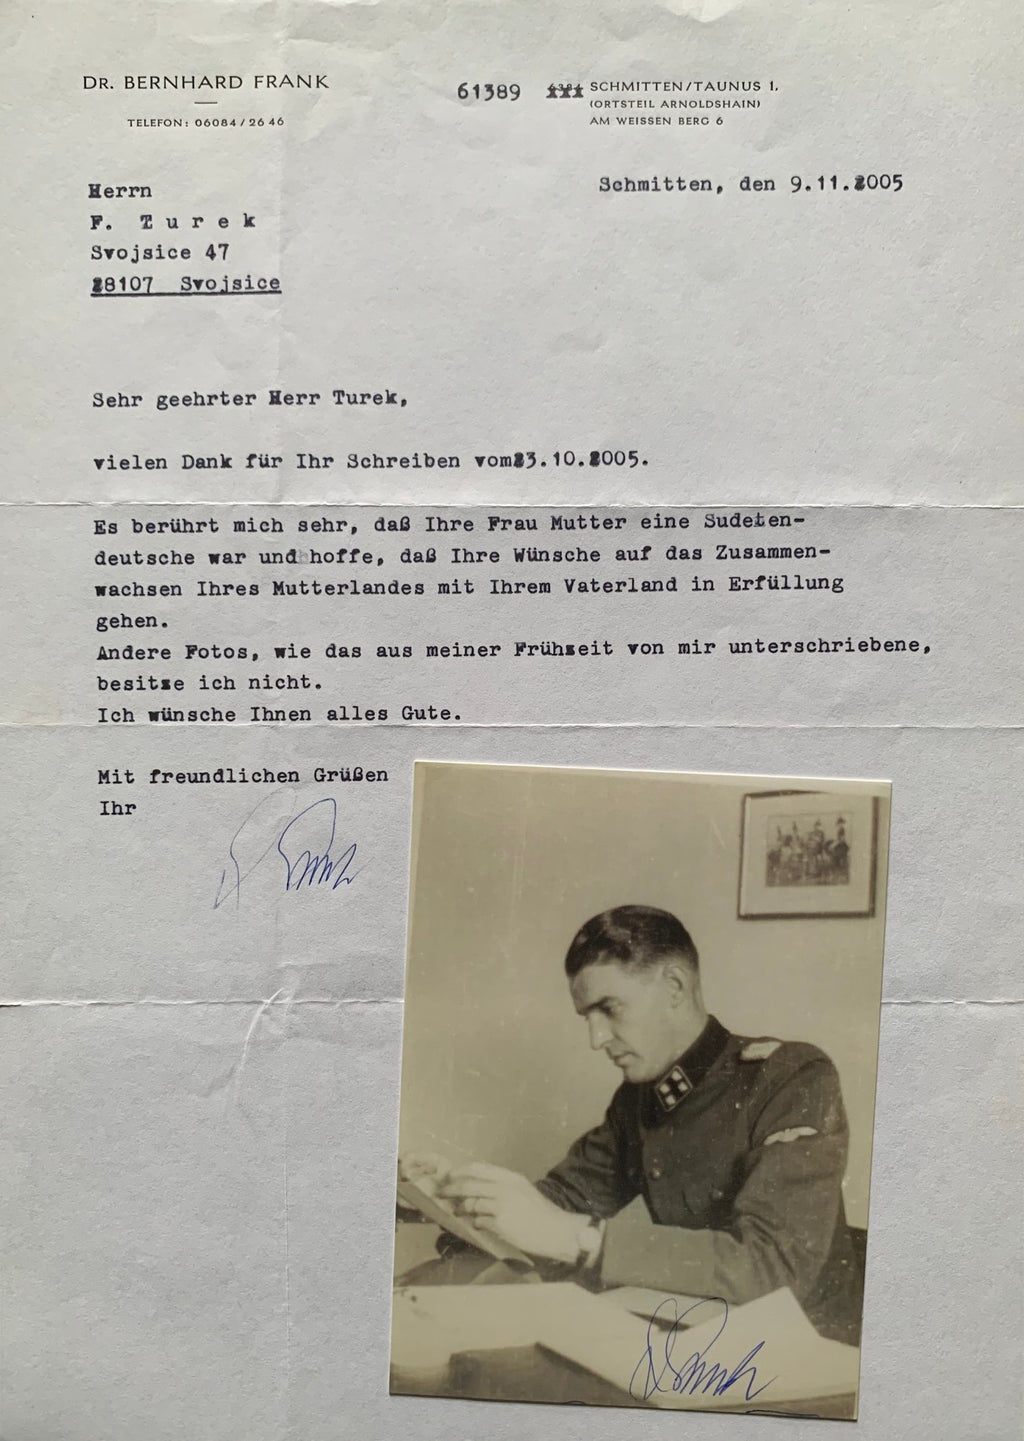 DR. BERNHARD FRANK
TELEFON: 06084/26 46
61389 SCHMITTEN/TAUNUS 1,
(ORTSTEIL ARNOLDSHAIN)
AM WEISSEN BERG 6
Schmitten, den 9.11.2005
Herrn
F. T u r e k
Svojsice 47
28107 Svojsice
Sehr geehrter Herr Turek,
vielen Dank für Ihr Schreiben vom23.10.2005.
Es berührt mich sehr, daß Ihre Frau Mutter eine Sudeten-
deutsche war und hoffe, daß Ihre Wünsche auf das Zusammen-
wachsen Ihres Mutterlandes mit Ihrem Vaterland in Erfüllung
gehen.
Andere Fotos, wie das aus meiner Frühzeit von mir unterschriebene,
besitze ich nicht.
Ich wünsche Ihnen alles Gute.
Mit freundlichen Grüßen
Ihr